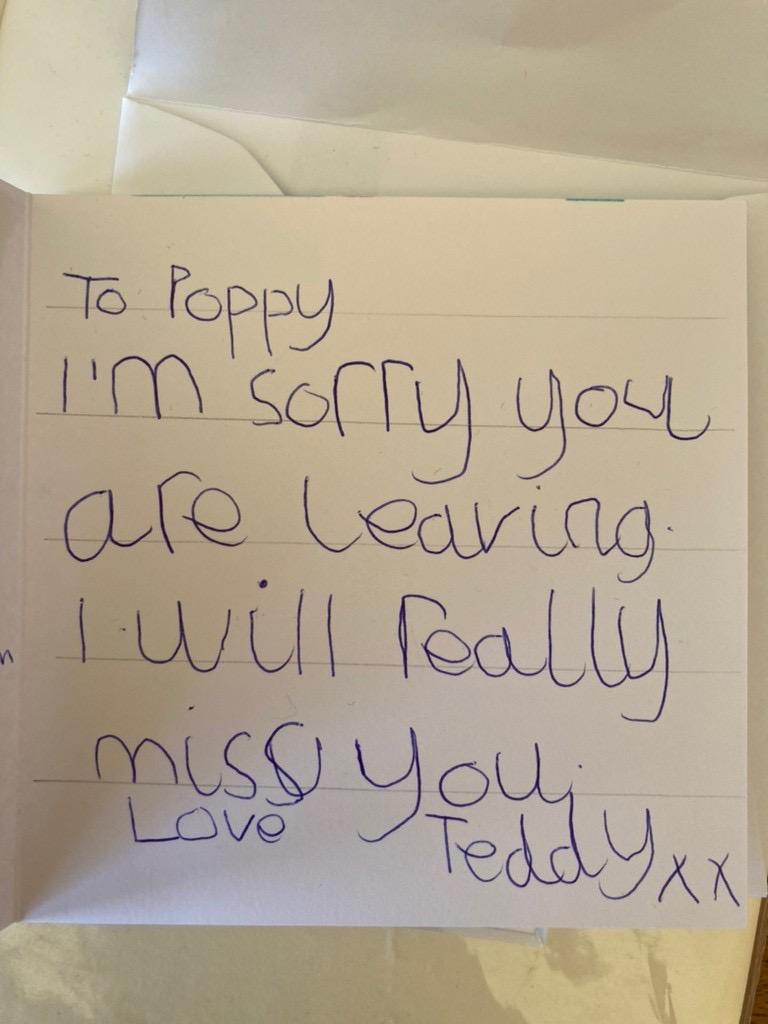 To Poppy
I'm sorry you
are leaving.
I will really
miss you.
Love Teddy xx
n